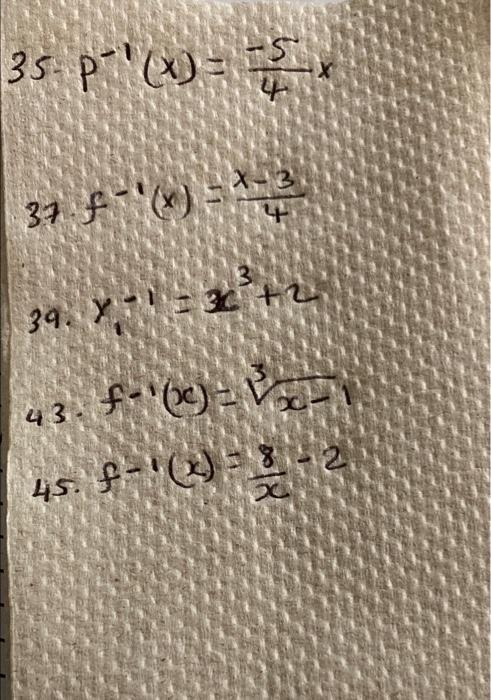 35. p⁻¹(x) = -5/4 x
37. f⁻¹(x) = x-3/4
39. Y₁⁻¹ = x³+2
43. f⁻¹(x) = ∛x-1
45. f⁻¹(x) = 8/x - 2